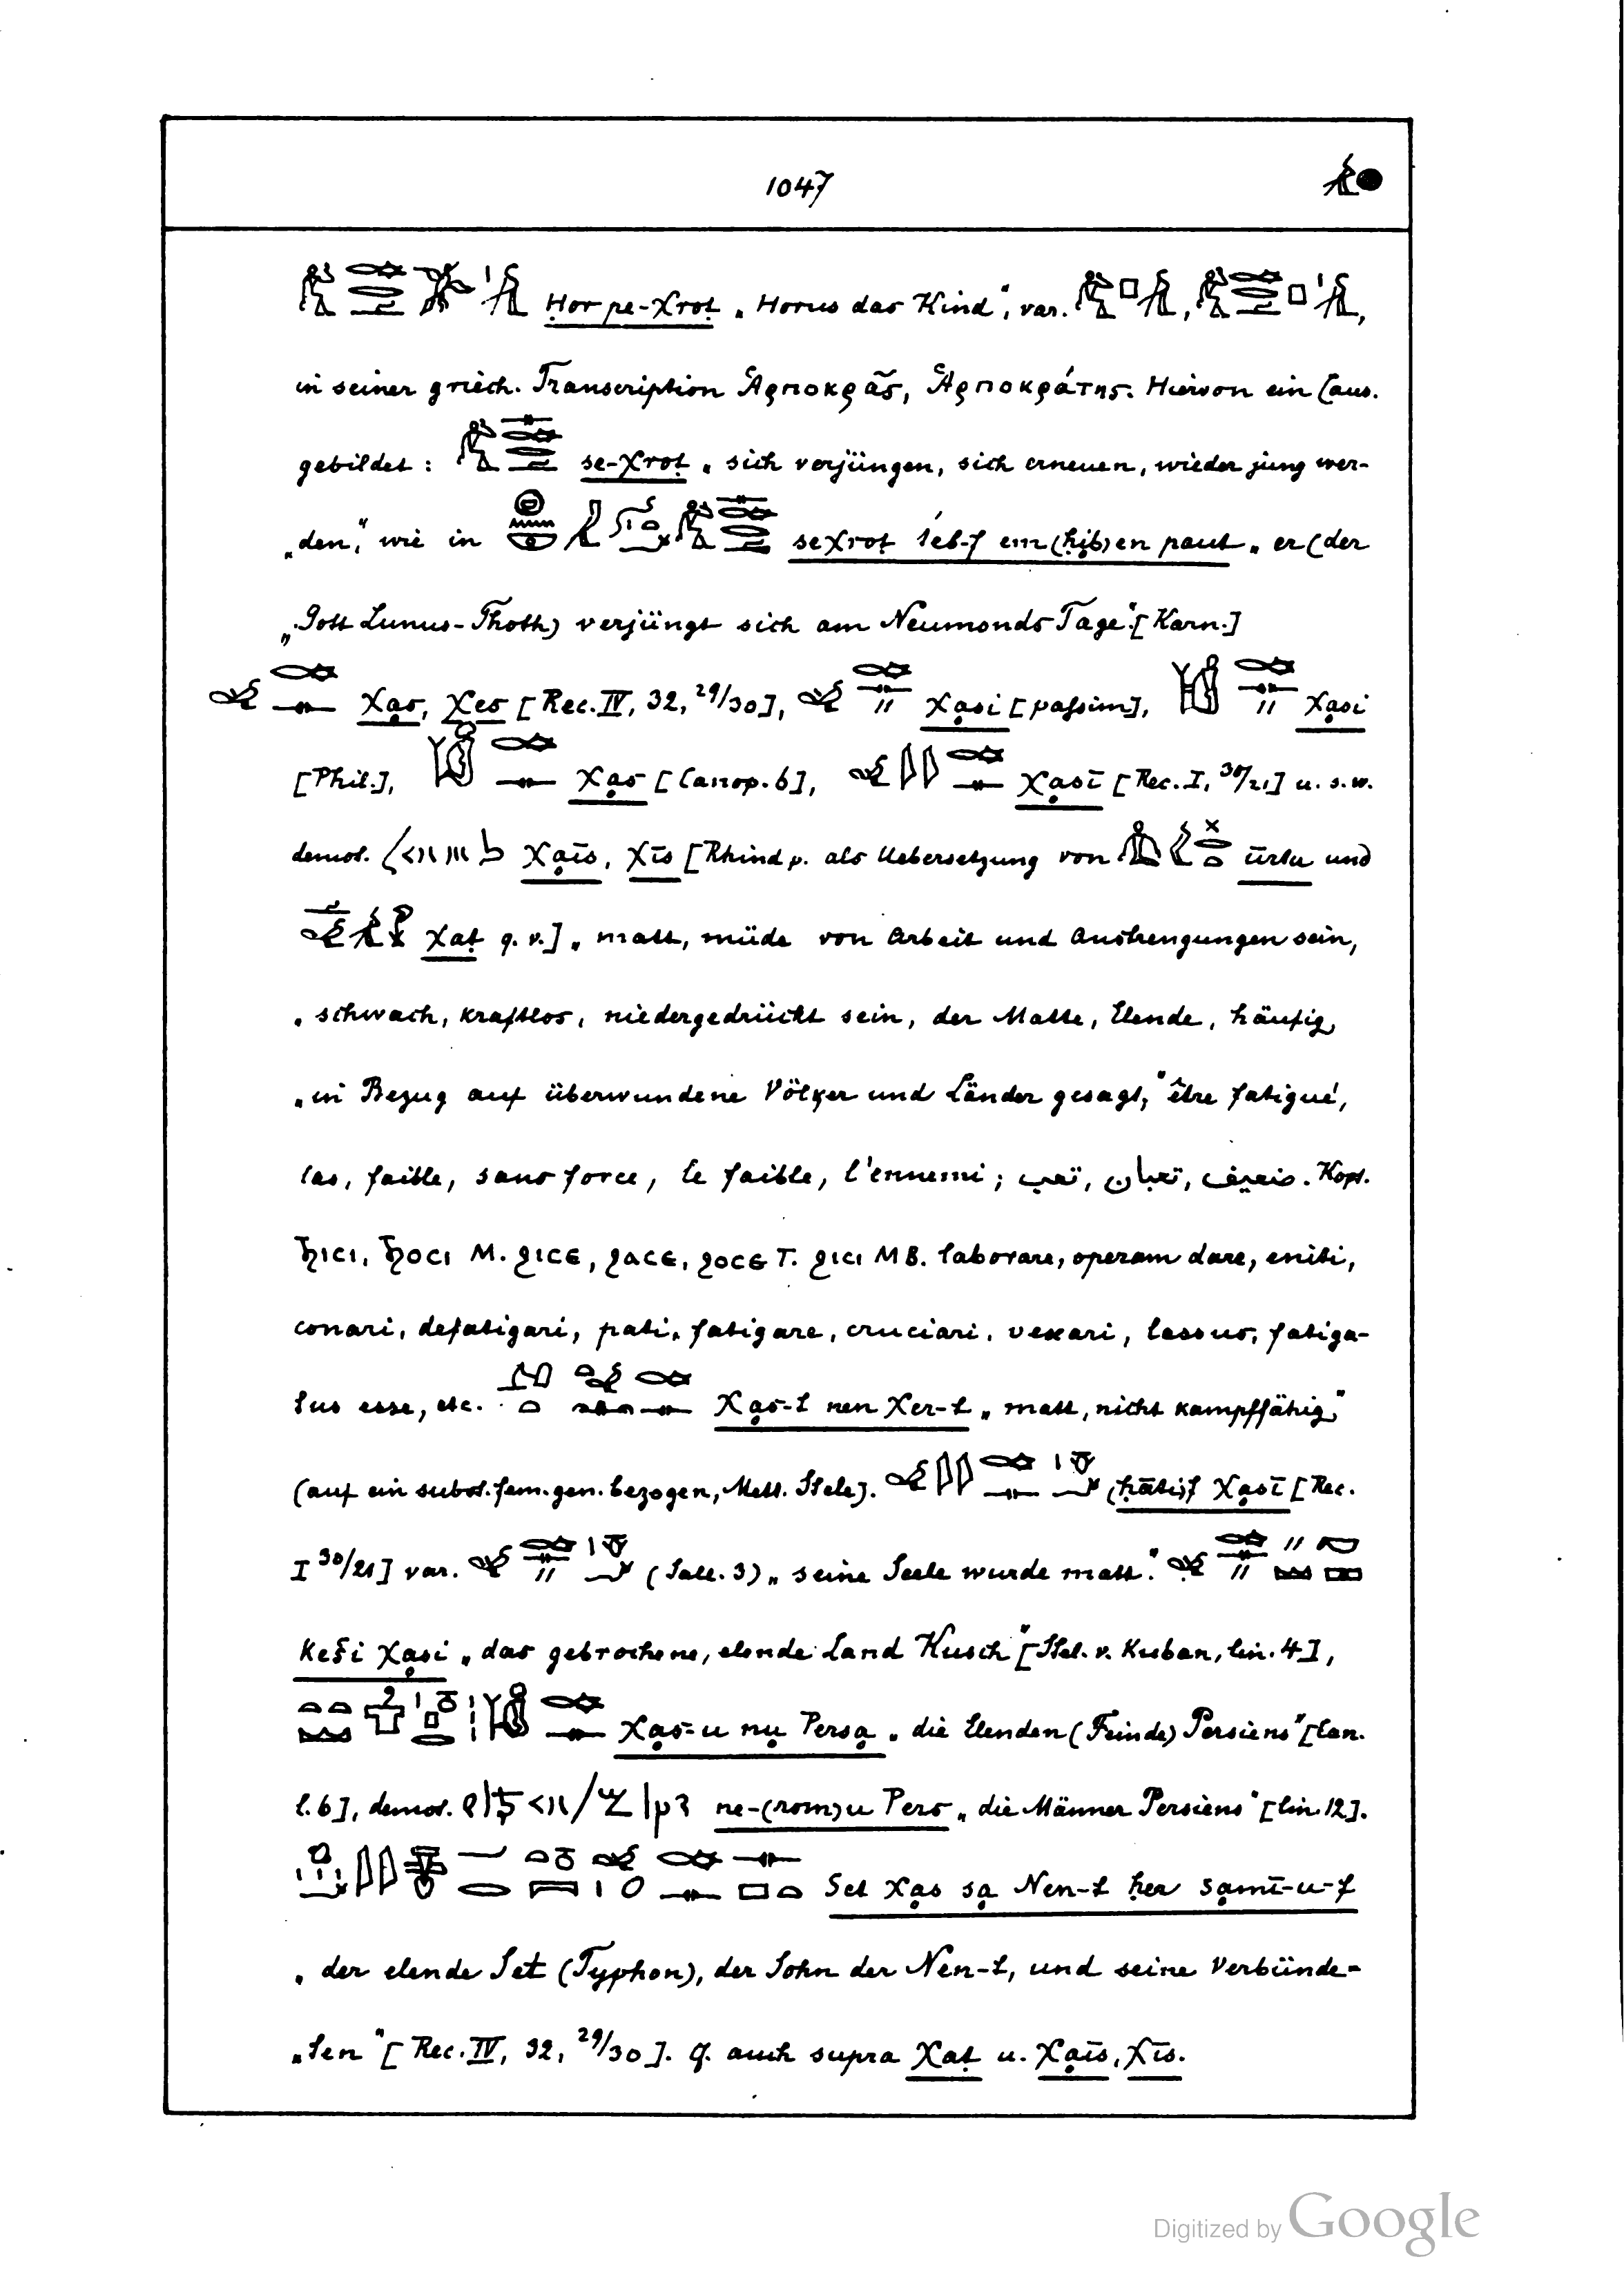 1047
Ḥor pe-χroṭ „Horus das Kind“, var.
in seiner griech. Transcription Ἁρποκρᾶς, Ἁρποκράτης. Hiervon ein Caus.
gebildet: se-χroṭ „sich verjüngen, sich erneuen, wieder jung wer-
„den“, wie in seχroṭ em (ḥib) en paut „er (der
„Gott Lunus-Thoth) verjüngt sich am Neumonds Tage“. [Karn.]
χạs, χes [Rec. IV, 32, 29/30], χạsi [passim], χạsi
[Phil.], χạs [Canop. 6], χạsī [Rec. I, 30/21] u. s. w.
demot. χạīs, χīs [Rhind p. als Uebersetzung von und
χaṭ q. v.] „matt, müde von Arbeit und Anstrengungen sein,
„schwach, kraftlos, niedergedrückt sein, der Matte, Elende, häufig
„in Bezug auf überwundene Völker und Länder gesagt,“ être fatigué,
las, faible, sans force, le faible, l'ennemi; تعب, تعبان, ضعيف. Kopt.
ϧιςι, ϧοςι M. ϩιςε, ϩαςε, ϩοςε T. ϩιςι MB. laborare, operam dare, eniti,
conari, defatigari, pati, fatigare, cruciari, vexari, lassus, fatiga-
tus esse, etc. χạs-t nen χer-t „matt, nicht kampffähig“
(auf ein subst. fem. gen. bezogen, Mett. Stele). χạsī [Rec.
I 30/21] var. (Sall. 3) „seine Seele wurde matt“.
Keši χạsi „das gebrochene, elende Land Kusch“ [Stel. v. Kuban, lin. 4],
χạs-u nụ Persạ „die Elenden (Feinde) Persiens“ [Can.
l. 6], demot. ne-(rom)u Pers „die Männer Persiens“ [lin 12].
Set χạs sạ Nen-t ḥer sạmī-u-f
„der elende Set (Typhon), der Sohn der Nen-t, und seine Verbünde-
„ten“ [Rec. IV, 32, 29/30]. Cf. auch supra χaṭ u. χạīs, χīs.
Digitized by Google